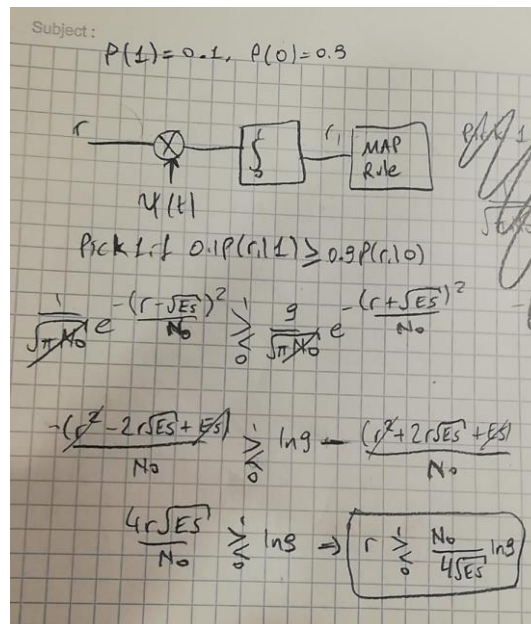 Subject:
P(1)=0.1, P(0)=0.9
r
∫
r₁
MAP
Rule
Pick 1
ψ(t)
Pick 1 if 0.1P(r₁|1) ≥ 0.9P(r₁|0)
1/√(πN₀) e^(-(r-√Es)²/N₀) ≷ 9/√(πN₀) e^(-(r+√Es)²/N₀)
-(r²-2r√Es+Es)/N₀ ≷ ln9 - (r²+2r√Es+Es)/N₀
4r√Es/N₀ ≷ ln9 ⇒ r ≷ N₀/4√Es ln9